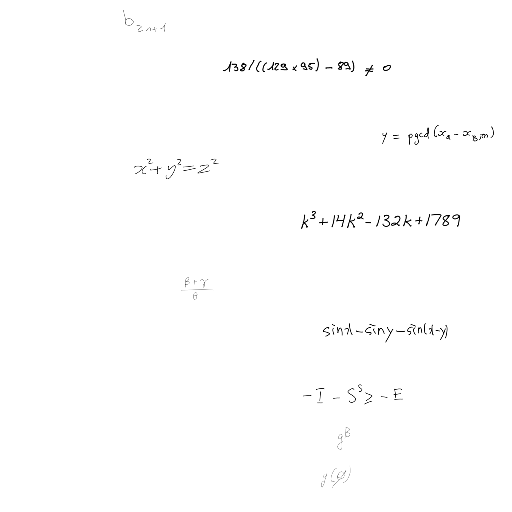 b_{2n+1}
138/((129 × 95) - 89) ≠ 0
y = pgcd(x_a - x_b, m)
x² + y² = z²
k³ + 14k² - 132k + 1789
(β + γ)/θ
sin x - sin y - sin(x - y)
- I - S^s ≥ - E
g^B
y(g)